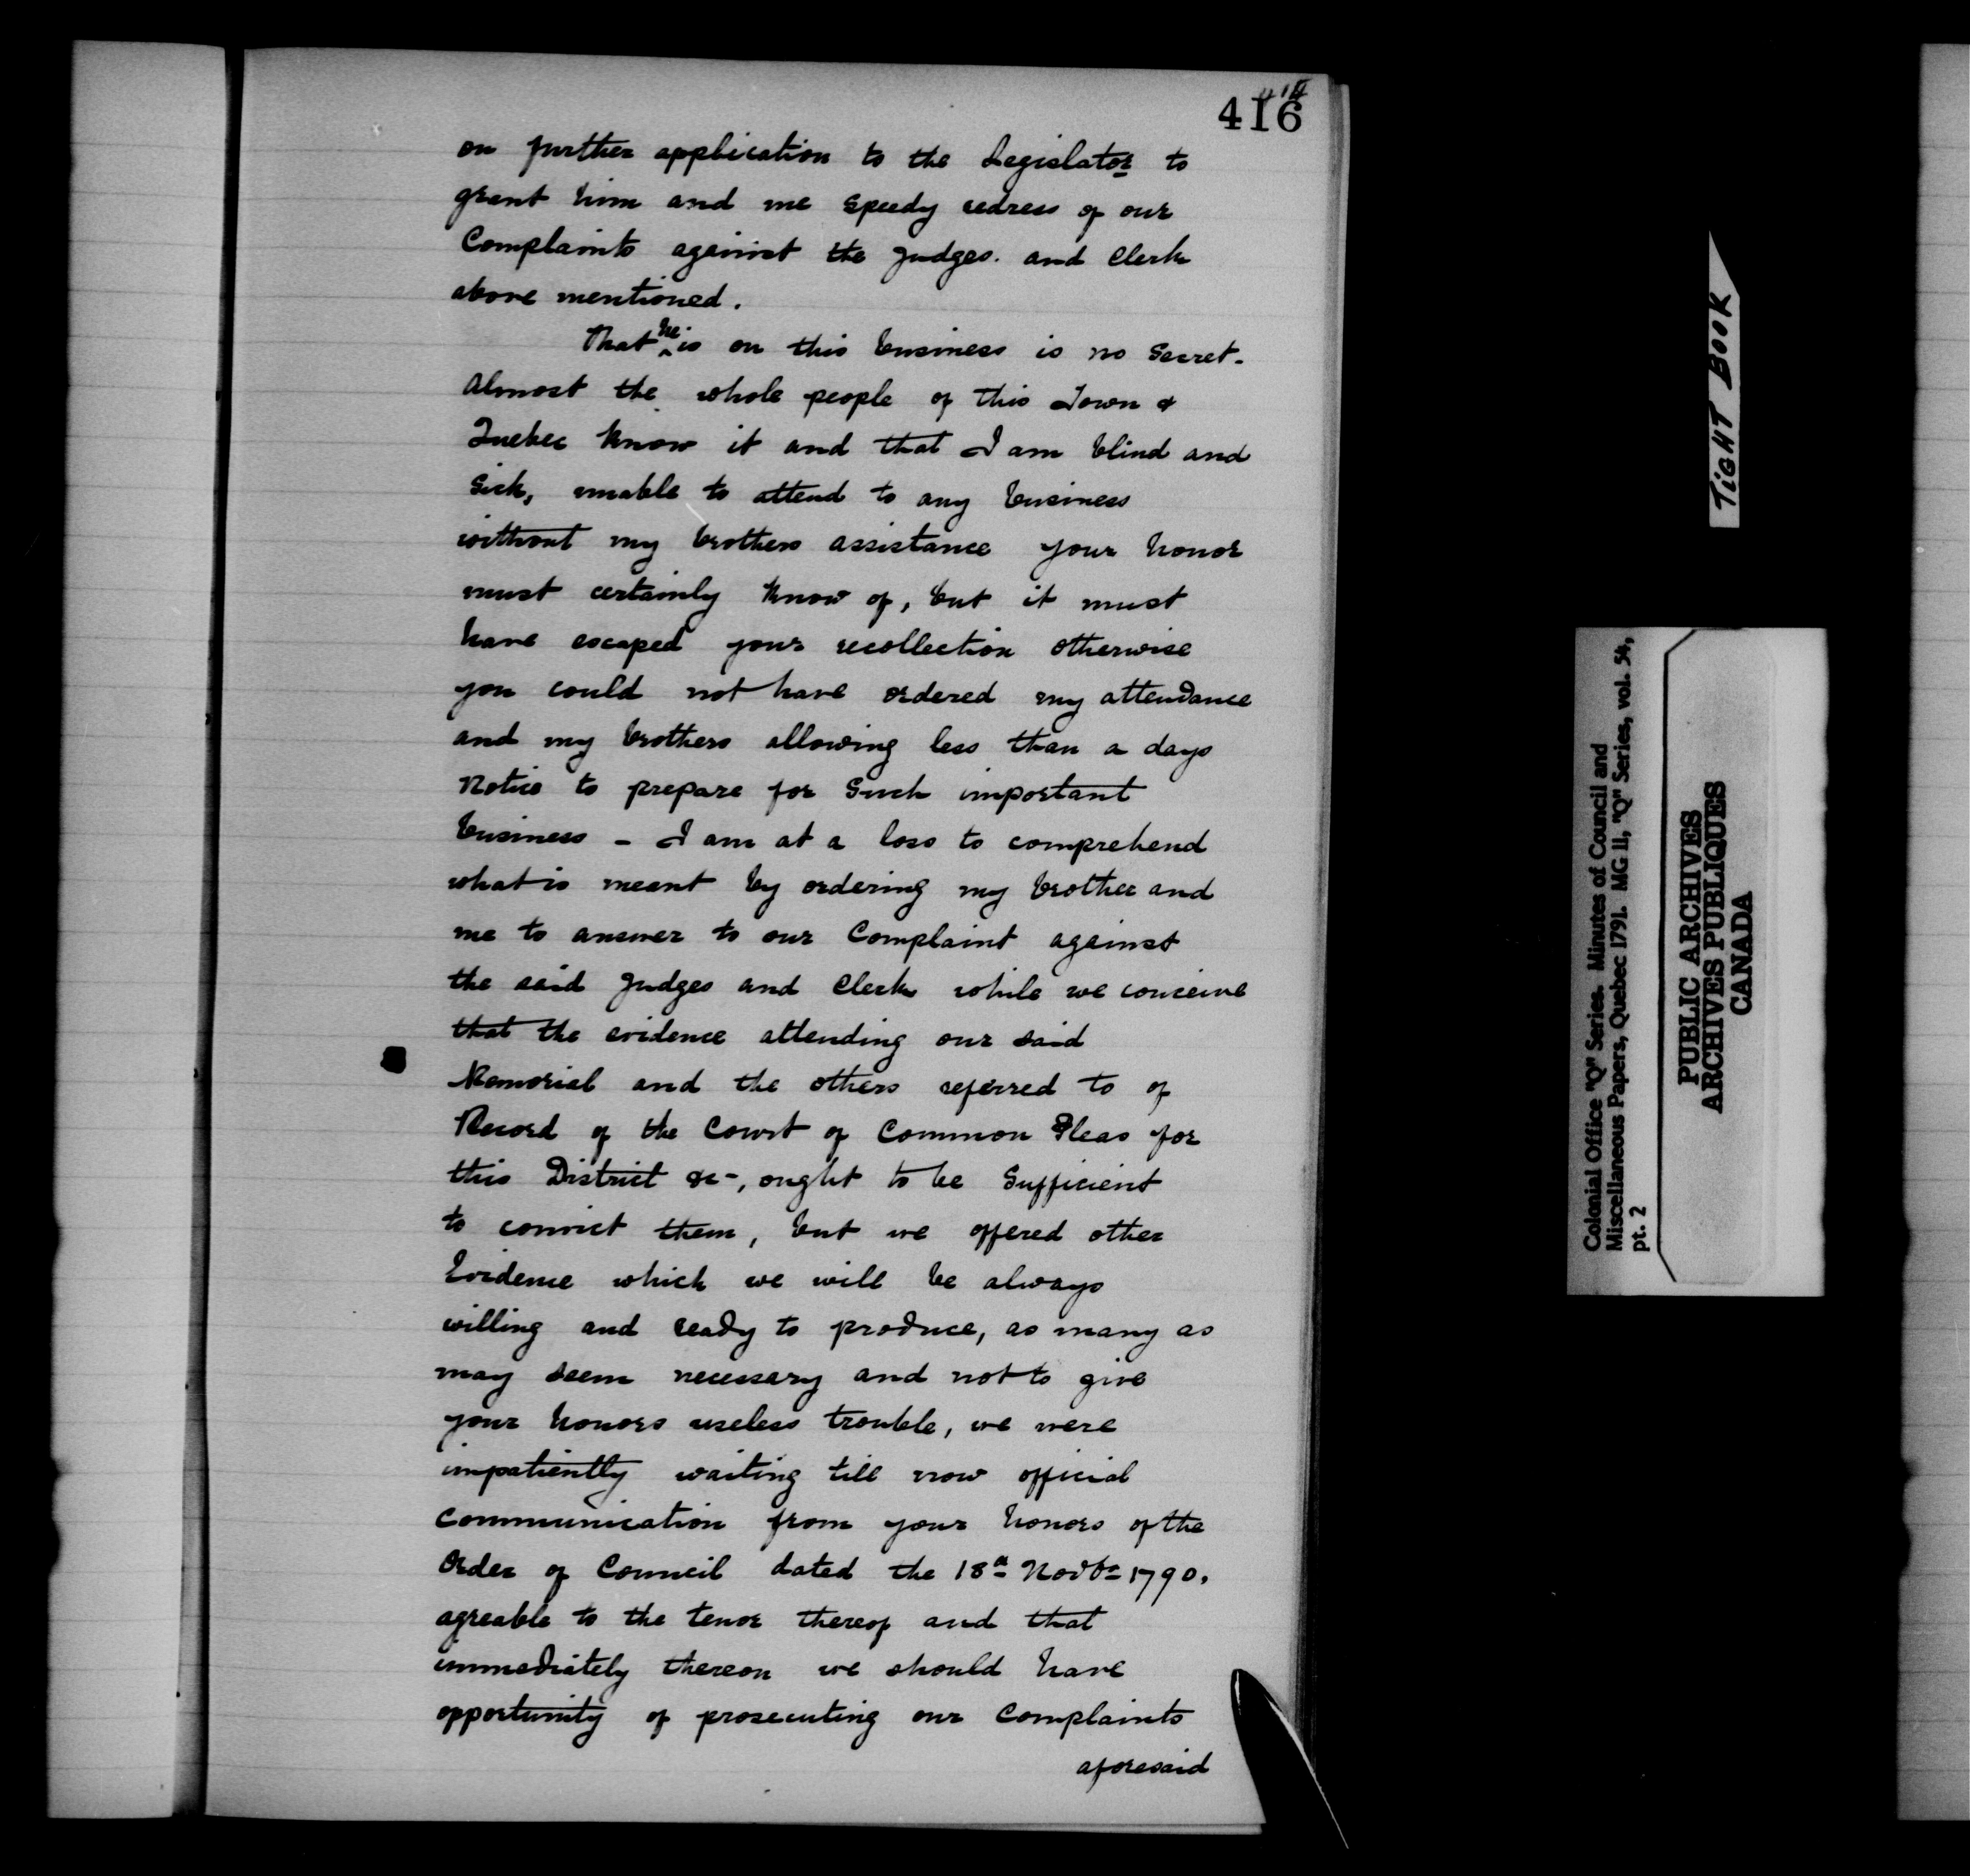 416
414
on further application to the Legislator to
grant him and me speedy redress of our
Complaints against the Judges. and Clerk
above mentioned.
That he is on this business is no Secret.
Almost the whole people of this Town &
Quebec know it and that I am blind and
Sick, unable to attend to any business
without my brothers assistance your honor
must certainly know of, but it must
have escaped your recollection otherwise
you could not have ordered my attendance
and my brothers allowing less than a days
Notice to prepare for Such important
business - I am at a loss to comprehend
what is meant by ordering my brother and
me to answer to our Complaint against
the said Judges and Clerk while we conceive
that the evidence attending our said
Memorial and the others referred to of
Record of the Court of Common Pleas for
this District &c-, ought to be Sufficient
to convict them, but we offered other
Evidence which we will be always
willing and ready to produce, as many as
may seem necessary and not to give
your honors useless trouble, we were
impatiently waiting till now official
communication from your honors of the
Order of Council dated the 18th Novbr 1790.
agreable to the tenor thereof and that
immediately thereon we should have
opportunity of prosecuting our Complaints
aforesaid
TIGHT BOOK
Colonial Office "Q" Series. Minutes of Council and
Miscellaneous Papers, Quebec 1791. MG 11, "Q" Series, vol. 54,
pt. 2
PUBLIC ARCHIVES
ARCHIVES PUBLIQUES
CANADA